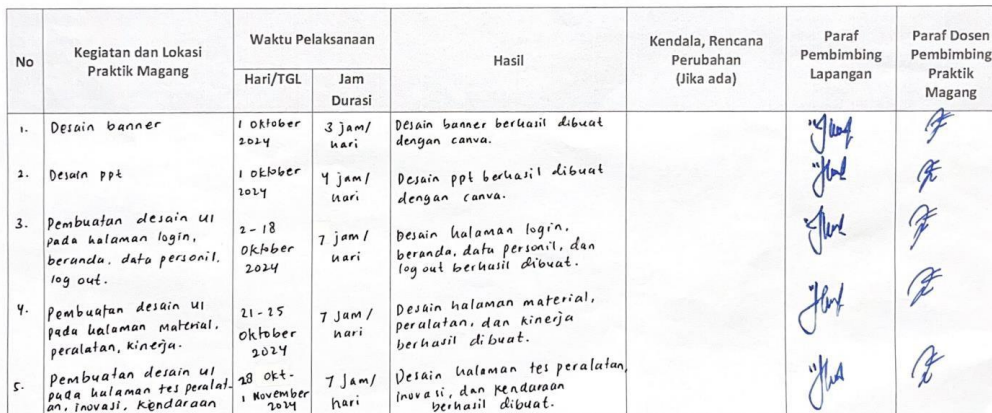 No
Kegiatan dan Lokasi
Praktik Magang
Waktu Pelaksanaan
Hari/TGL
Jam
Durasi
Hasil
Kendala, Rencana
Perubahan
(Jika ada)
Paraf
Pembimbing
Lapangan
Paraf Dosen
Pembimbing
Praktik
Magang
1.
Desain banner
1 Oktober
2024
3 jam/
hari
Desain banner berhasil dibuat
dengan canva.
2.
Desain ppt
1 Oktober
2024
4 jam/
hari
Desain ppt berhasil dibuat
dengan canva.
3.
Pembuatan desain UI
pada halaman login,
beranda, data personil,
log out.
2 - 18
Oktober
2024
7 jam/
hari
Desain halaman login,
beranda, data personil, dan
log out berhasil dibuat.
4.
Pembuatan desain UI
pada halaman material,
peralatan, kinerja.
21 - 25
Oktober
2024
7 Jam/
hari
Desain halaman material,
peralatan, dan kinerja
berhasil dibuat.
5.
Pembuatan desain UI
pada halaman tes peralat-
an, inovasi, kendaraan
28 Okt -
1 November
2024
7 Jam/
hari
Desain halaman tes peralatan,
inovasi, dan kendaraan
berhasil dibuat.